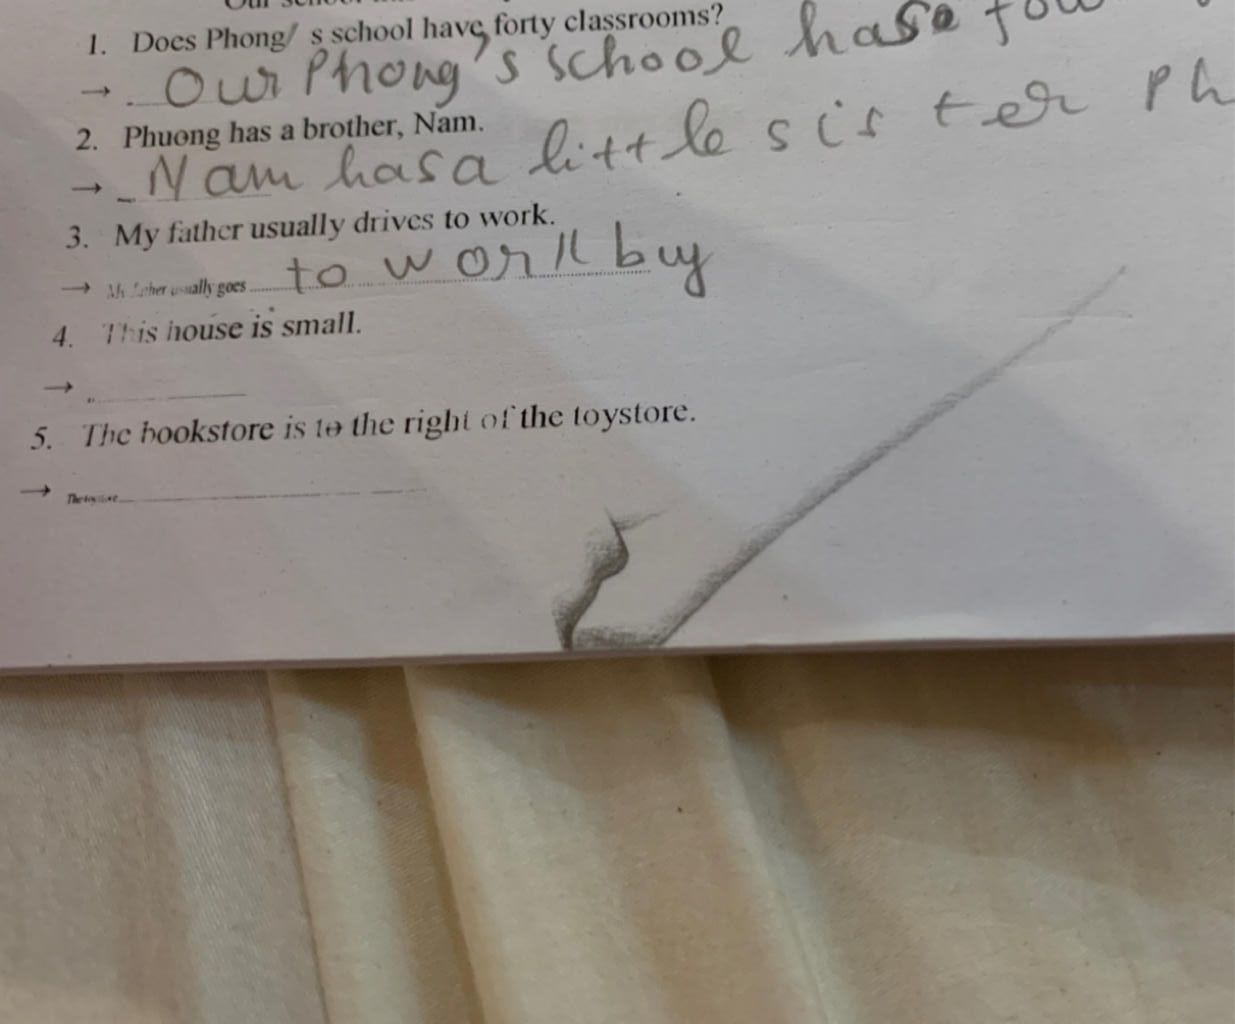 Our school
1. Does Phong/ s school have forty classrooms?
→ Our Phong's school hase
2. Phuong has a brother, Nam.
→ Nam has a little sister Ph
3. My father usually drives to work.
→ My father usually goes to work buy
4. This house is small.
→
5. The bookstore is to the right of the toystore.
→ The toystore